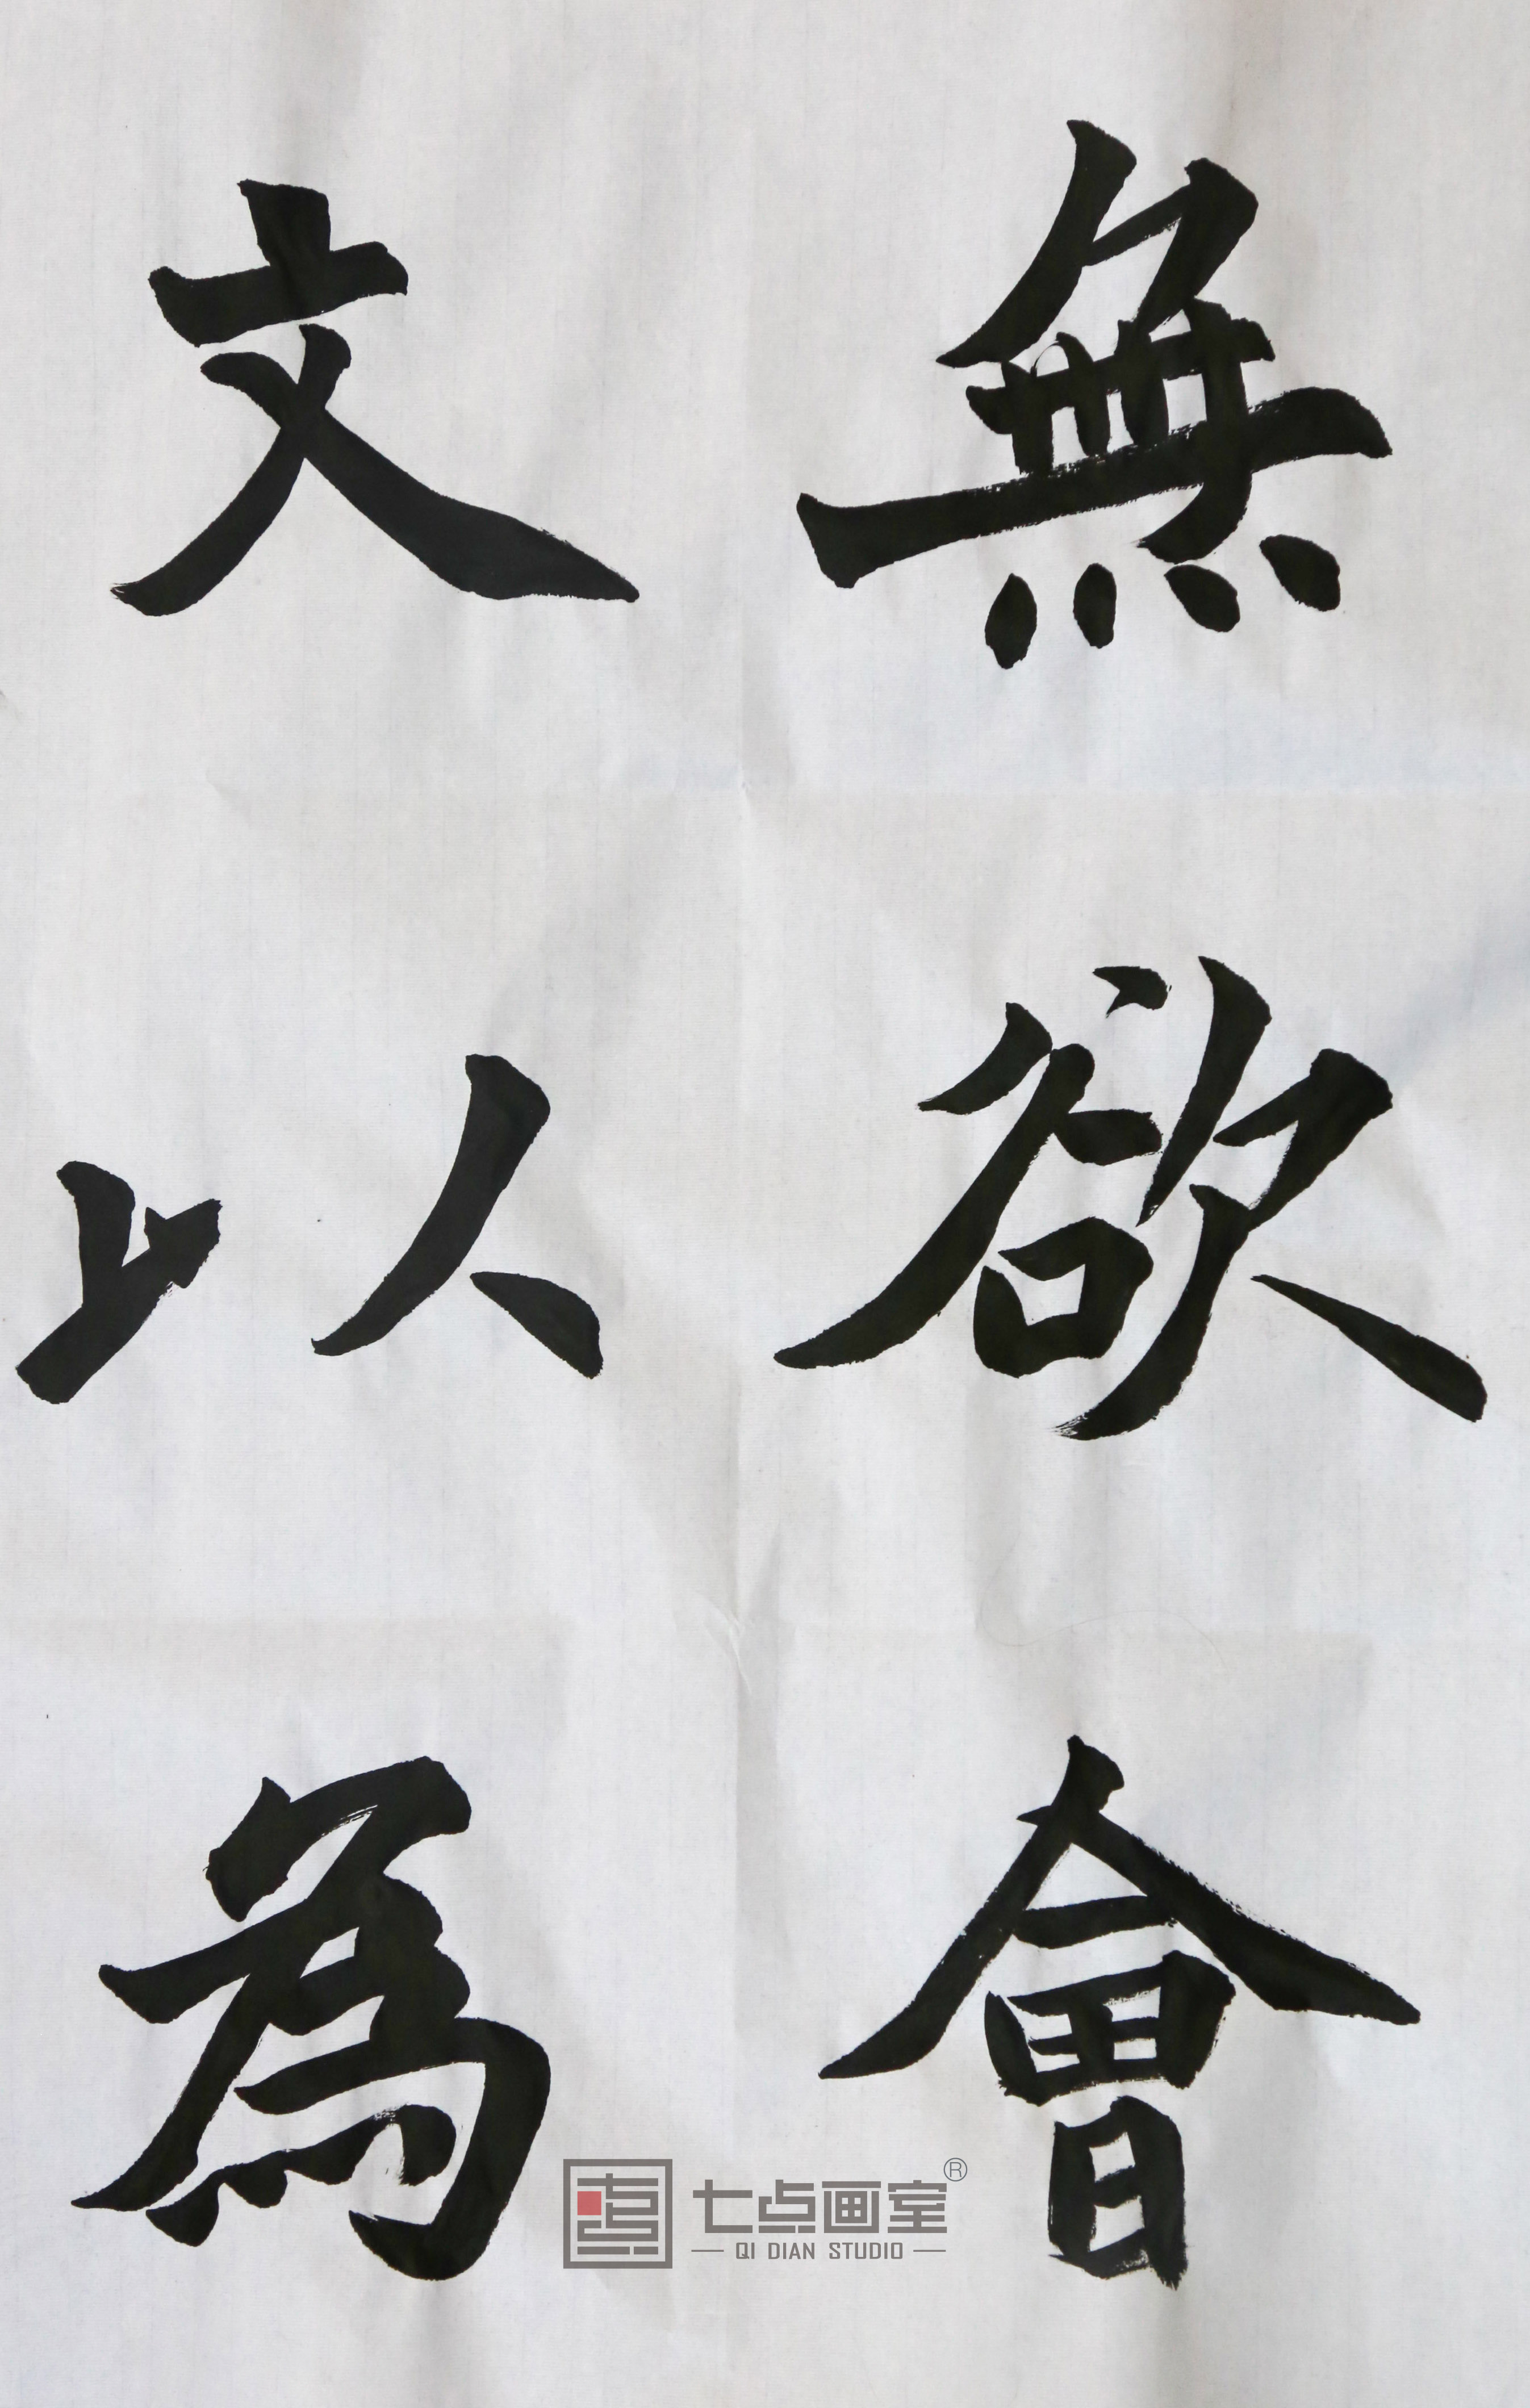 無欲會
文以為
七点画室®
QI DIAN STUDIO